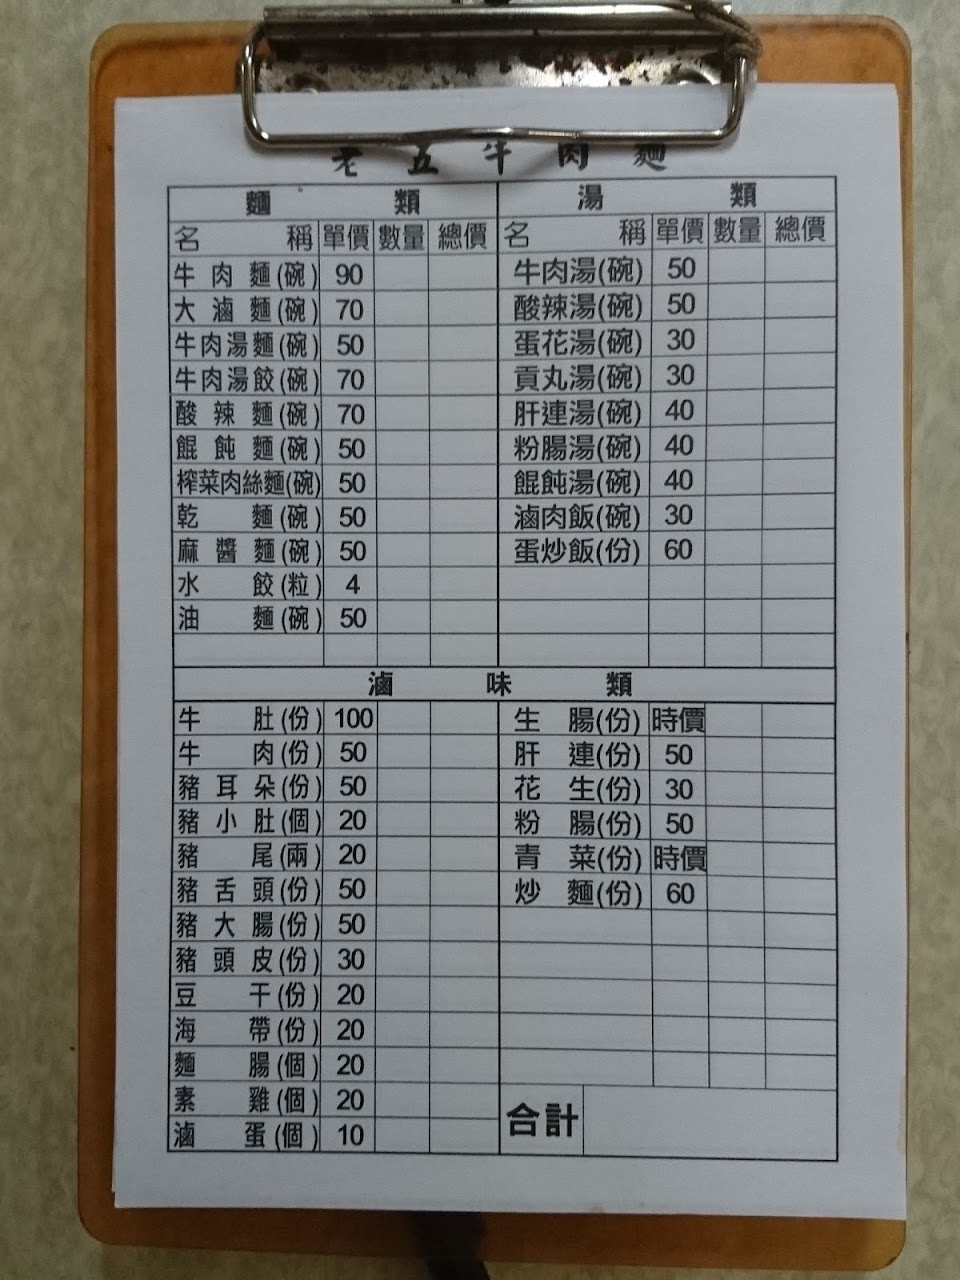 老五牛肉麵
麵類
名稱 單價 數量 總價
牛肉麵(碗) 90
大滷麵(碗) 70
牛肉湯麵(碗) 50
牛肉湯餃(碗) 70
酸辣麵(碗) 70
餛飩麵(碗) 50
榨菜肉絲麵(碗) 50
乾麵(碗) 50
麻醬麵(碗) 50
水餃(粒) 4
油麵(碗) 50
湯類
名稱 單價 數量 總價
牛肉湯(碗) 50
酸辣湯(碗) 50
蛋花湯(碗) 30
貢丸湯(碗) 30
肝連湯(碗) 40
粉腸湯(碗) 40
餛飩湯(碗) 40
滷肉飯(碗) 30
蛋炒飯(份) 60
滷味類
牛肚(份) 100
牛肉(份) 50
豬耳朵(份) 50
豬小肚(個) 20
豬尾(兩) 20
豬舌頭(份) 50
豬大腸(份) 50
豬頭皮(份) 30
豆干(份) 20
海帶(份) 20
麵腸(個) 20
素雞(個) 20
滷蛋(個) 10
生腸(份) 時價
肝連(份) 50
花生(份) 30
粉腸(份) 50
青菜(份) 時價
炒麵(份) 60
合計